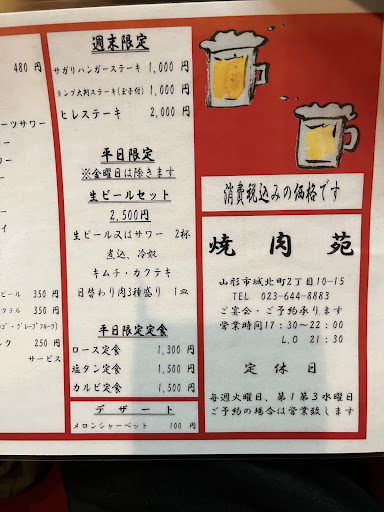 480 円
ーツサワー
ビール 350 円
クテル 350 円
ゴ・グレープフルーツ)
ンク 250 円
サービス
週末限定
サガリハンガーステーキ 1,000 円
ランプ大判ステーキ(玉子付) 1,000 円
ヒレステーキ 2,000 円
平日限定
※金曜日は除きます
生ビールセット
2,500円
生ビール又はサワー 2杯
煮込、冷奴
キムチ・カクテキ
日替わり肉3種盛り 1皿
平日限定定食
ロース定食 1,300 円
塩タン定食 1,500 円
カルビ定食 1,500 円
デザート
メロンシャーベット 100 円
消費税込みの価格です
焼肉苑
山形市城北町2丁目10-15
TEL 023-644-8883
ご宴会・ご予約承ります
営業時間17:30~22:00
L.O 21:30
定休日
毎週火曜日、第1第3水曜日
ご予約の場合は営業致します